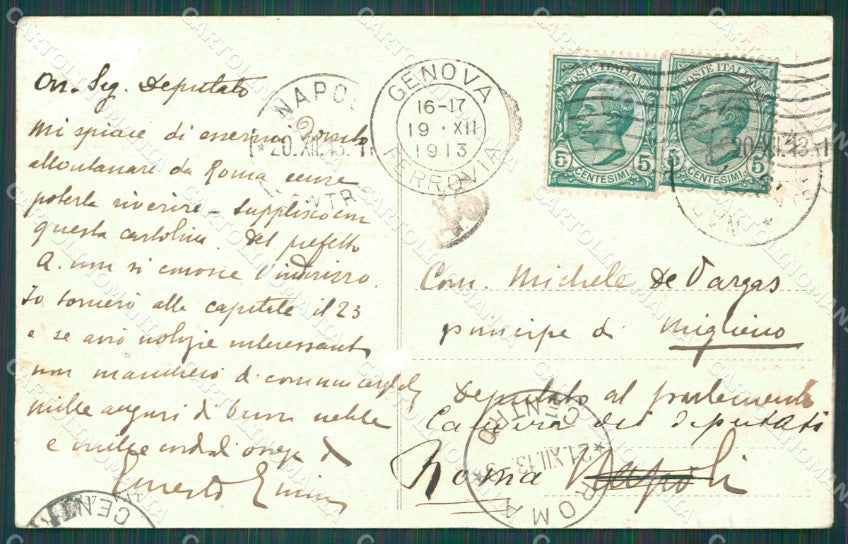 On. Sig. Deputato
mi spiace di essermi dovuto
allontanare da Roma senza
poterla riverire – supplisco con
questa cartolina. Del prefetto
A. non si conosce l'indirizzo.
Io tornerò alla capitale il 23
e se avrò notizie interessanti
non mancherò di comunicargliele
mille auguri di buon natale
e mille cordiali
Ernesto
NAPOLI
20.XII.13
CENTRO
GENOVA
16-17
19·XII
1913
FERROVIA
POSTE ITALIANE
5 5
CENTESIMI
POSTE ITALIANE
5 5
CENTESIMI
20.XII.13
Com. Michele De Vargas
principe di Migliano
Deputato al parlamento
Camera dei deputati
Roma Napoli
CENTRO
21.XII.13
ROMA
CENTR
CARTOLINOMANIA